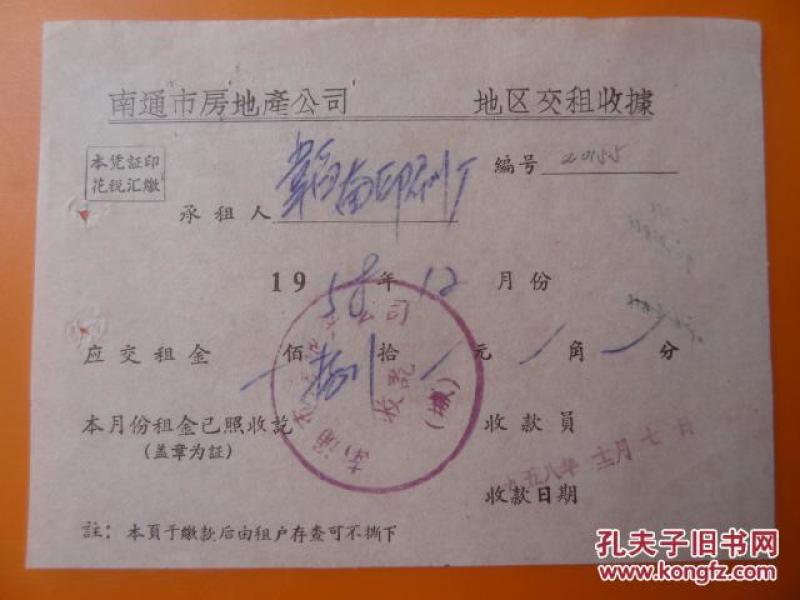 南通市房地產公司 地区交租收據
本凭証印
花税汇繳
編号 20155
承租人 南印刷厂
1958年12月份
应交租金 佰 拾 元 角 分
本月份租金已照收訖 收款員
(盖章为証)
一九五八年 十二月 七 日
收款日期
註：本頁于繳款后由租户存查可不撕下
孔夫子旧书网
www.kongfz.com